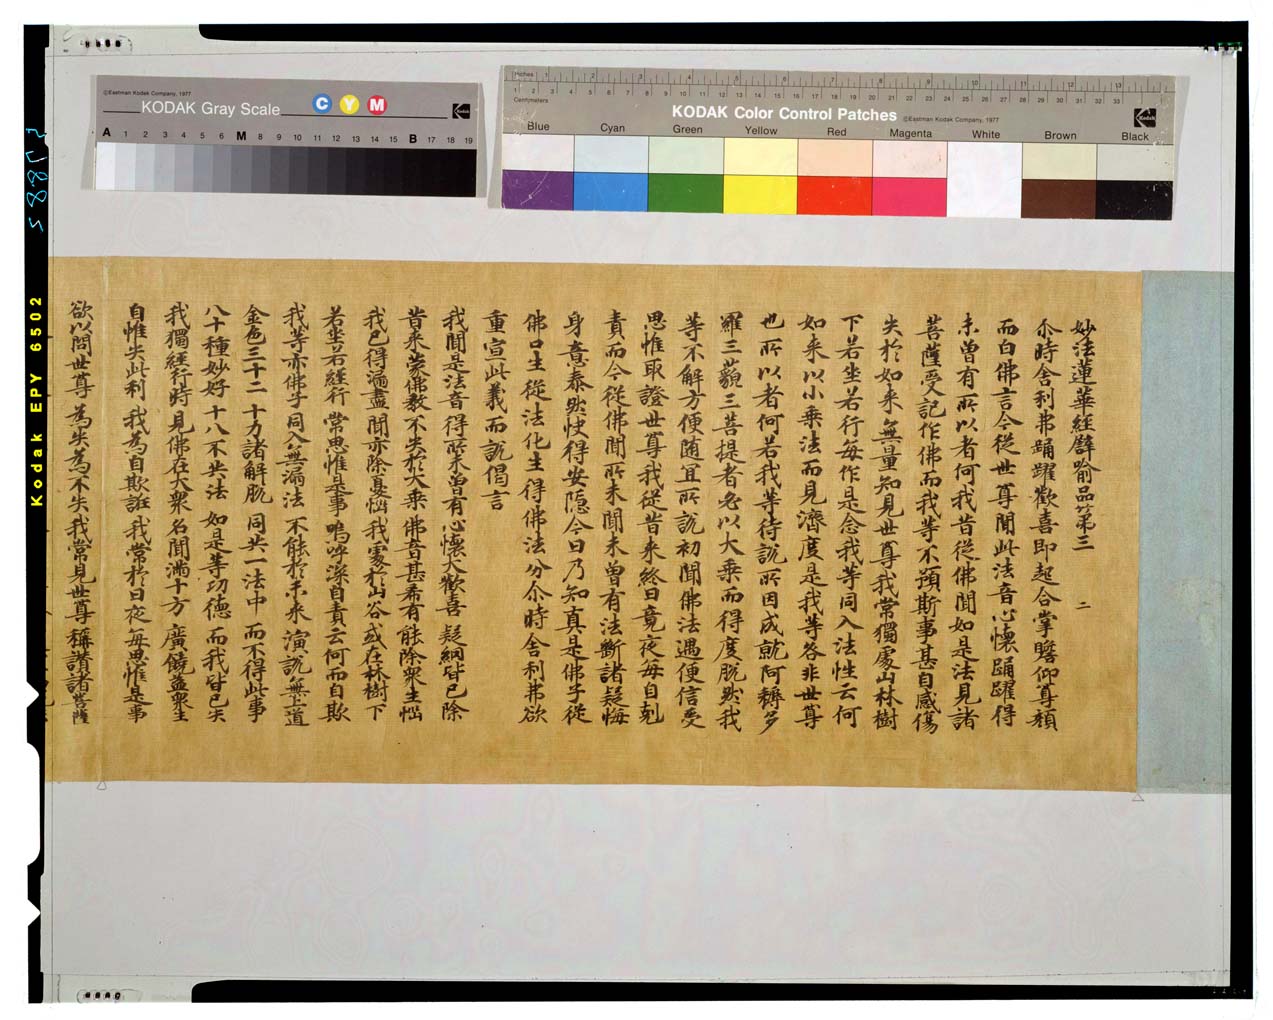 ©Eastman Kodak Company, 1977
KODAK Gray Scale
C Y M
Kodak
A 1 2 3 4 5 6 M 8 9 10 11 12 13 14 15 B 17 18 19
Inches 1 2 3 4 5 6 7 8 9 10 11 12 13
1 2 3 4 5 6 7 8 9 10 11 12 13 14 15 16 17 18 19 20 21 22 23 24 25 26 27 28 29 30 31 32 33
Centimeters
KODAK Color Control Patches ©Eastman Kodak Company, 1977
Kodak
Blue Cyan Green Yellow Red Magenta White Brown Black
Kodak EPY 6502
妙法蓮華經譬喻品第三 二
尒時舍利弗踊躍歡喜即起合掌瞻仰尊顏
而白佛言今從世尊聞此法音心懷踊躍得
未曾有所以者何我昔從佛聞如是法見諸
菩薩受記作佛而我等不預斯事甚自感傷
失於如来無量知見世尊我常獨處山林樹
下若坐若行每作是念我等同入法性云何
如来以小乘法而見濟度是我等咎非世尊
也所以者何若我等待說所因成就阿耨多
羅三藐三菩提者必以大乘而得度脫然我
等不解方便随冝所說初聞佛法遇便信受
思惟取證世尊我從昔来終日竟夜每自剋
責而今從佛聞所未聞未曾有法斷諸疑悔
身意泰然快得安隱今日乃知真是佛子從
佛口生從法化生得佛法分尒時舍利弗欲
重宣此義而說偈言
我聞是法音 得所未曾有 心懷大歡喜 疑網皆已除
昔来蒙佛教 不失於大乘 佛音甚希有 能除眾生惱
我已得漏盡 聞亦除憂惱 我處於山谷 或在林樹下
若坐若經行 常思惟是事 嗚呼深自責 云何而自欺
我等亦佛子 同入無漏法 不能於未来 演說無上道
金色三十二 十力諸解脫 同共一法中 而不得此事
八十種妙好 十八不共法 如是等功德 而我皆已失
我獨經行時 見佛在大眾 名聞滿十方 廣饒益眾生
自惟失此利 我為自欺誑 我常於日夜 每思惟是事
欲以問世尊 為失為不失 我常見世尊 稱讚諸菩薩